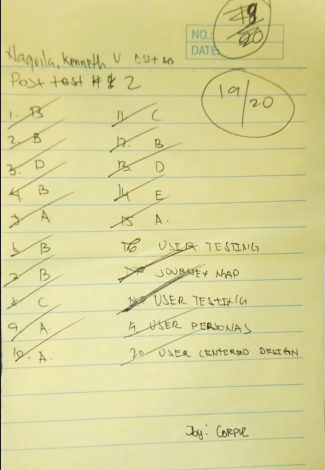 NO.: 18/20
DATE:
Haquila, Kenneth V
Post test # 2
19/20
1. B
2. B
3. D
4. B
5. A.
6 B
7 B
8 C
9 A.
10. A.
11. C
12. B
13. D
14. E
15 A.
16 USER TESTING
17 JOURNEY MAP
18 USER TESTING
19 USER PERSONAS
20 USER CENTERED DESIGN
by: Corpuz